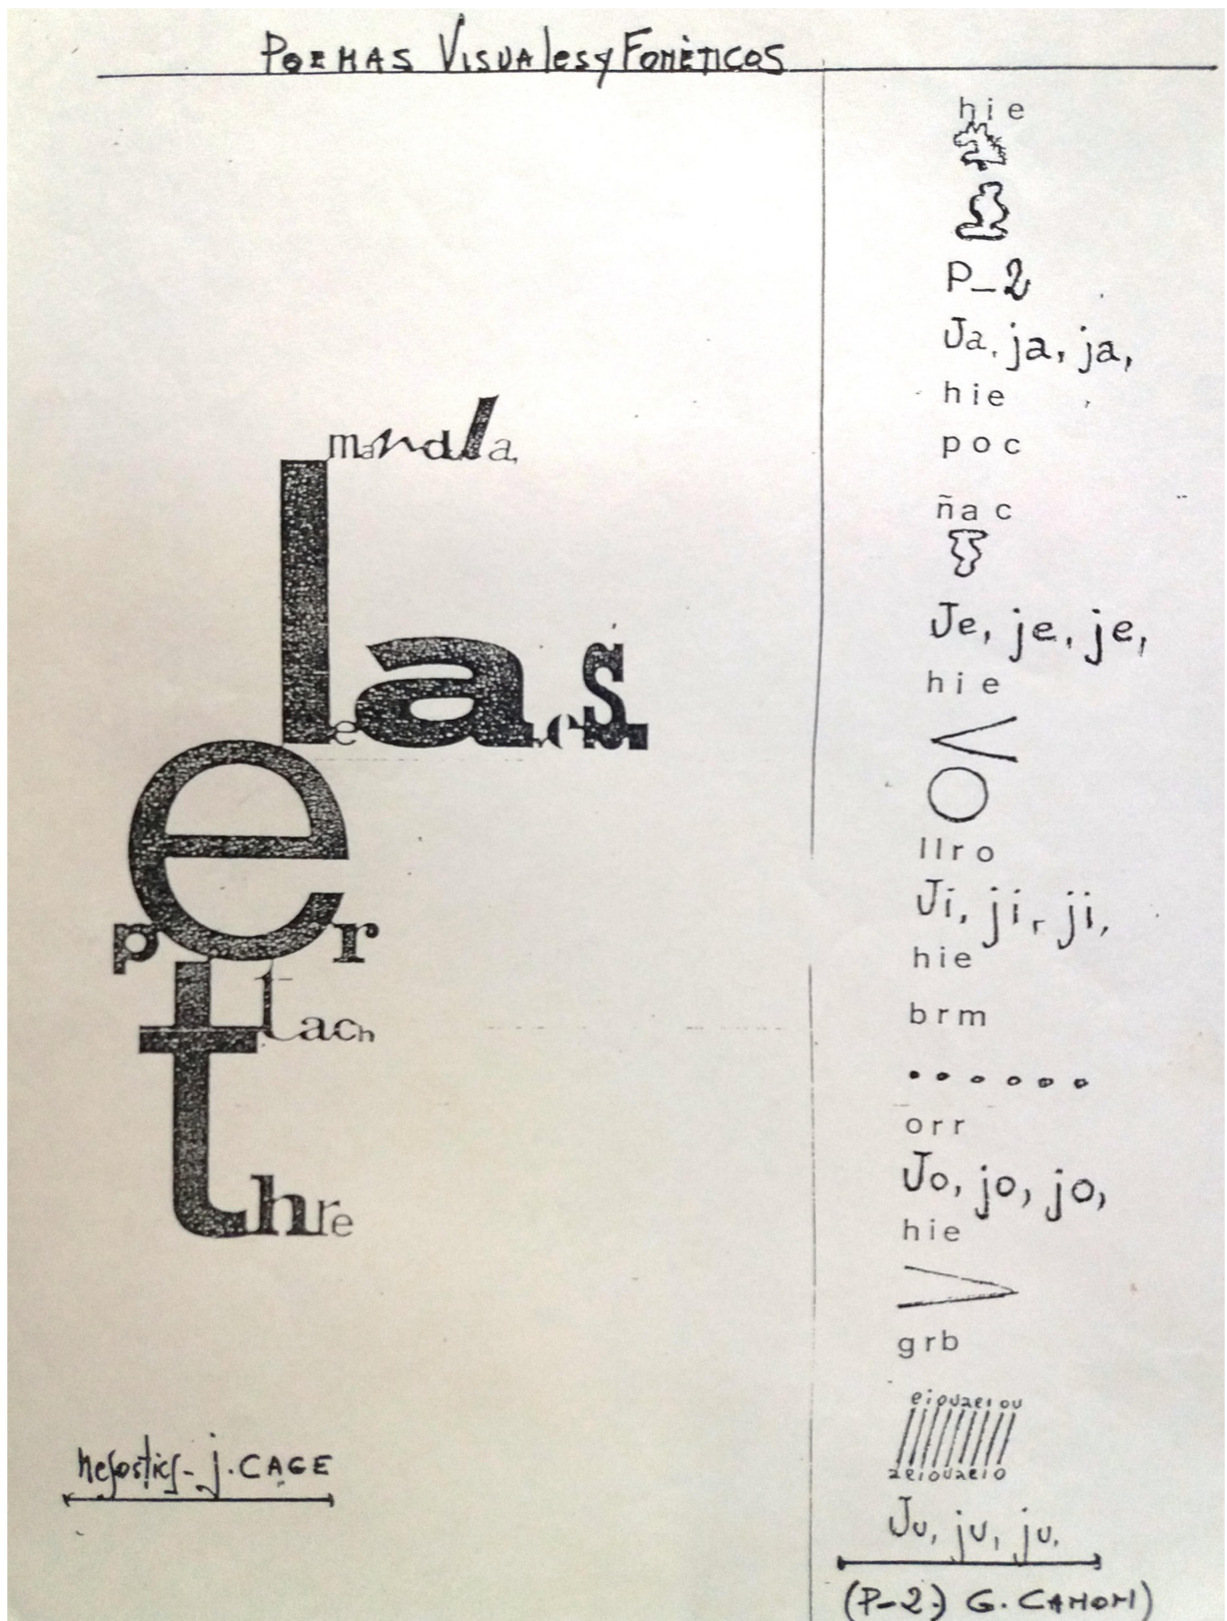 POEMAS VISUAlesy FONÈTICOS
mandula,
le
las
e
p r
t
tach
thre
Mesostics- j. CAGE
hie
P_2
Ja, ja, ja,
hie
poc
ñac
Je, je, je,
hie
<
O
llro
Ji, ji, ji,
hie
brm
• • • • • •
orr
Jo, jo, jo,
hie
>
grb
eiouaeiou
//////////
aeiouaeio
Ju, ju, ju,
(P-2.) G. CAMOM)